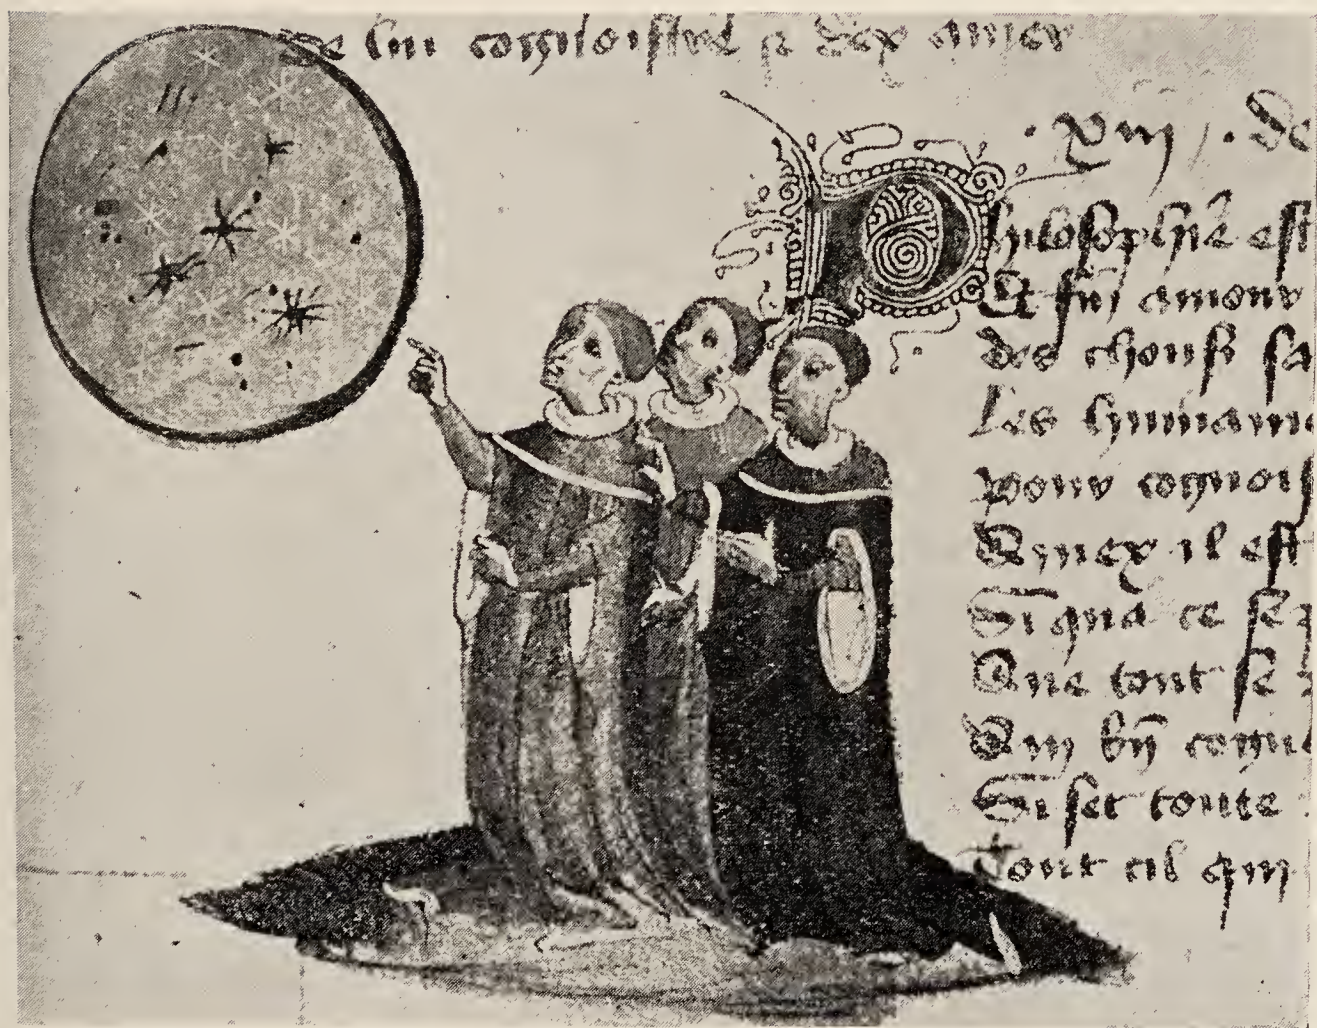 de lui congnoistre et dex amer
.XIII. de
Philosophie est
Et fu amour
des chouses sa
Les humaine
pour cognois
Quiex il est
Si que ce se
Que tout se
Qui bñ cogn
Si scet toute
Tout cil qui